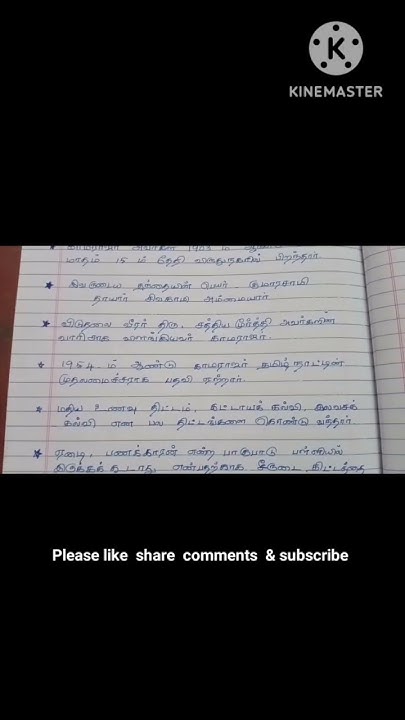 KINEMASTER
காமராஜர் அவர்கள் 1903 ம்
மாதம் 15 ம் தேதி விருதுநகரில் பிறந்தார்.
இவருடைய தந்தையின் பெயர் - குமாரசாமி
தாயார் சிவகாமி அம்மையார்
விடுதலை வீரர் திரு. சத்திய மூர்த்தி அவர்களின்
வாரிசாக வளங்கியவர் காமராஜர்.
1954 ம் ஆண்டு காமராஜர் தமிழ் நாட்டின்
முதலமைச்சராக பதவி ஏற்றார்.
மதிய உணவு திட்டம், கட்டாயக் கல்வி, இலவசக்
கல்வி என பல திட்டங்களை கொண்டு வந்தார்.
ஏழை, பணக்காரன் என்ற பாகுபாடு பள்ளியில்
இருக்கக் கூடாது, என்பதற்காக சீருடை திட்டத்தை
Please like share comments & subscribe